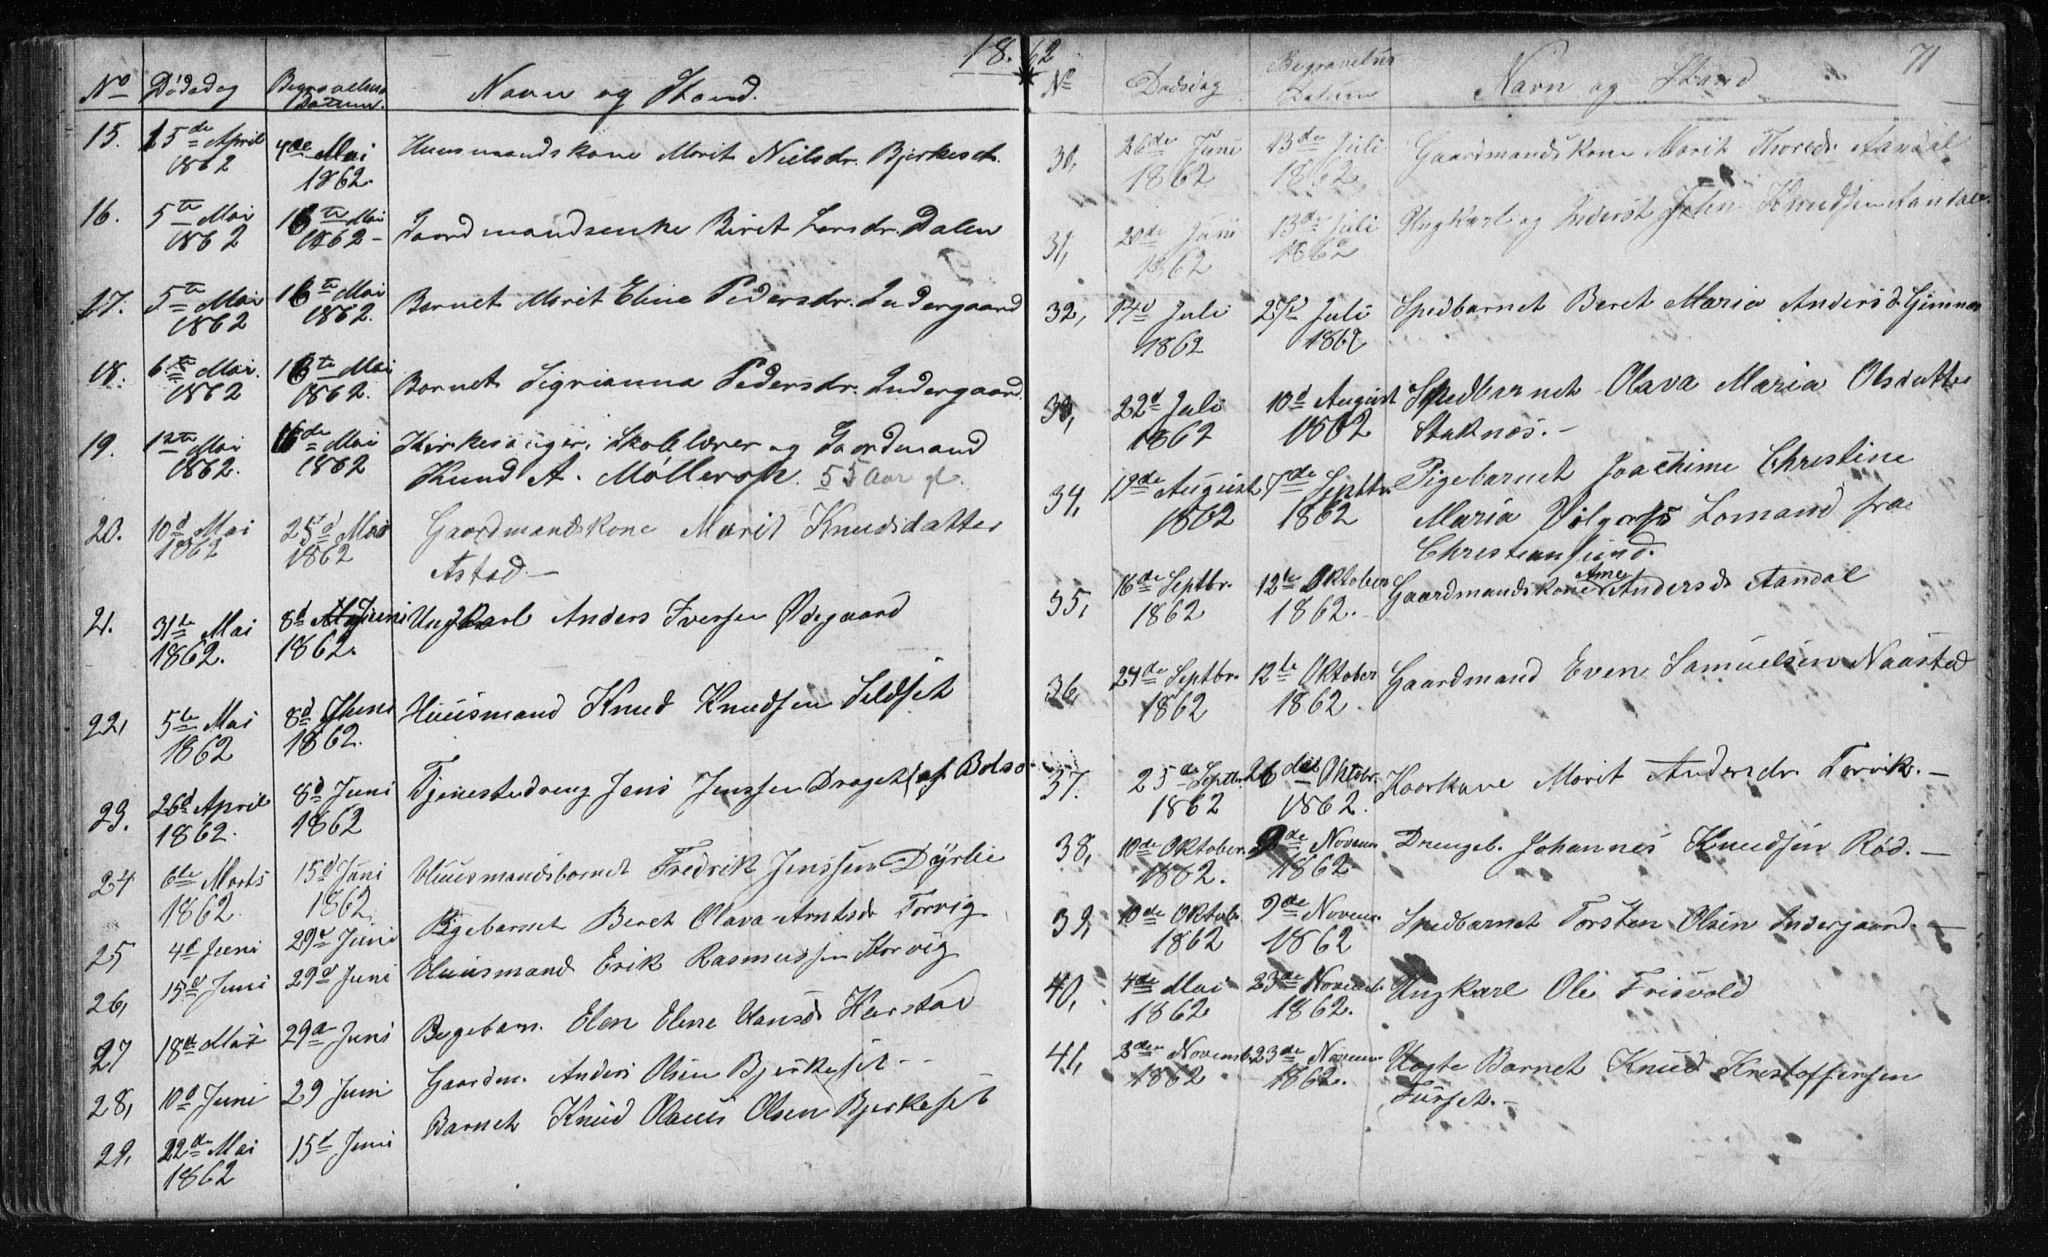 18 62
71
No Dødsdag Begravelses Datum. Navn og Stand.
15. 15de April 1862 4de Mai 1862. Huusmandskone Marit Nielsdr. Bjerkeset.
16. 5te Mai 1862 16te Mai 1862 - Gaardmandsenke Biret Larsdr. Dalen
17. 5te Mai 1862 16te Mai 1862. Barnet Marit Eline Pedersdr. Indergaard
18. 6te Mai. 1862 16te Mai 1862. Barnet Sigrianna Pedersdr. Indergaard.
19. 12te Mai 1862. 16de Mai 1862 Kirkesanger, Skolelærer og Gaardmand
Knud A. Møllerop. 55 Aar gl.
20. 10d Mai 1862 25d Mai 1862 Gaardmandskone Marit Knudsdatter
Astad. -
21. 31te Mai 1862. 8d Juni 1862. Ungkarl Anders Iversen Ødegaard
22, 5te Mai 1862 8d Juni 1862. Huusmand Knud Knudsen Seldset
23. 26d April 1862. 8d Juni 1862 Tjenestedreng Jens Jenssen Draget (af Bolsø
24 6te Marts 1862. 15d Juni 1862. Huusmandsbarnet Fredrik Jenssen Dÿrlie
25 4d Juni 29d Juni Pigebarnet Beret Olava Arntsd. Torvig
26, 15d Juni 29d Juni Huusmand Erik Rasmussen Storvig
27 18de Mai 29de Juni Pigebarn. Elen Elene Hansd. Harstad
28, 10d Juni 29 Juni Gaardm. Anders Olsen Bjerkeset - -
29, 22de Mai 1862 15d Juni Barnet Knud Olaus Olsen Bjerkeset
No Dødsdag Begravelses Datum Navn og Stand
30, 26de Juni 1862 13de Juli 1862, Gaardmandskone Marit Thoresdr Aandal
31, 20de Juni 1862 13de Juli 1862 Ungkarl og John Knudsen Aandal.
32, 14d Juli 1862 27d Juli 1862 Spedbarnet Beret Maria Andersd. Gimnes
33, 22d Juli 1862 10d August 1862 Spedbarnet Olava Maria Olsdatter
Staknes. -
34, 19de August 1862 7de Septbr. 1862 Pigebarnet Joachime Christine
Maria Lomand fra
Christiansund.
35, 16de Septbr. 1862 12te Oktober 1862. Gaardmandskone Ane Andersd. Aandal
36 24de Septbr. 1862 12te Oktober 1862. Gaardmand Even Samuelsen Naastad
37. 25de Septbr. 1862 26de Oktbr. 1862. Kaarkone Marit Andersdr. Torvik. -
38, 10de Oktober. 1862. 9de Novem. 1862 Drengeb. Johannes Knudsen Rød. -
39, 10de Oktob. 1862 9de Novem. 1862 Spedbarnet Torsten Olsen Indergaard. -
40, 4de Mai 1862 23de Novemb. 1862. Ungkarl Ole Frisvold
41, 2den Novemb. 1862 23de Novem. 1862. Uægte Barnet Knud Kristoffersen
Furset. -